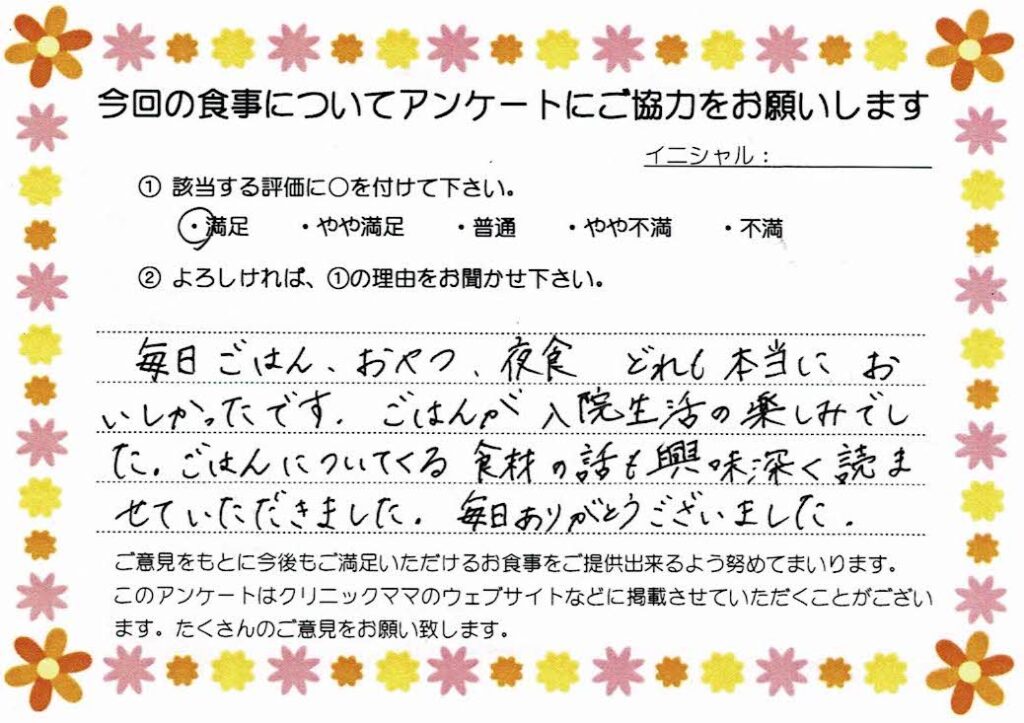 今回の食事についてアンケートにご協力をお願いします
イニシャル：
① 該当する評価に○を付けて下さい。
・満足 ・やや満足 ・普通 ・やや不満 ・不満
② よろしければ、①の理由をお聞かせ下さい。
毎日ごはん、おやつ、夜食 どれも本当にお
いしかったです. ごはんが入院生活の楽しみでし
た。ごはんについてくる食材の話も興味深く読ま
せていただきました。毎日ありがとうございました。
ご意見をもとに今後もご満足いただけるお食事をご提供出来るよう努めてまいります。
このアンケートはクリニックママのウェブサイトなどに掲載させていただくことがござい
ます。たくさんのご意見をお願い致します。